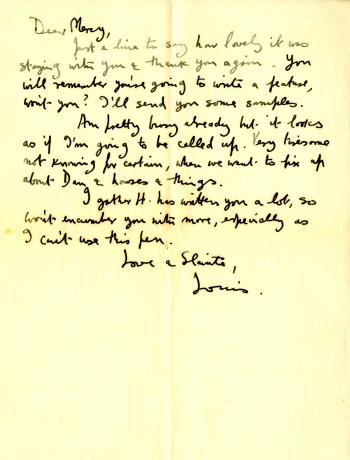 Dear Mercy,
Just a line to say how lovely it was
staying with you & thank you again. You
will remember you're going to write a feature,
won't you? I'll send you some samples.
Am pretty busy already but it looks
as if I'm going to be called up. Very tiresome
not knowing for certain, when we want to fix up
about Dan & houses & things.
I gather H. has written you a lot, so
won't encumber you with more, especially as
I can't use this pen.
Love & Slainte,
Louis.